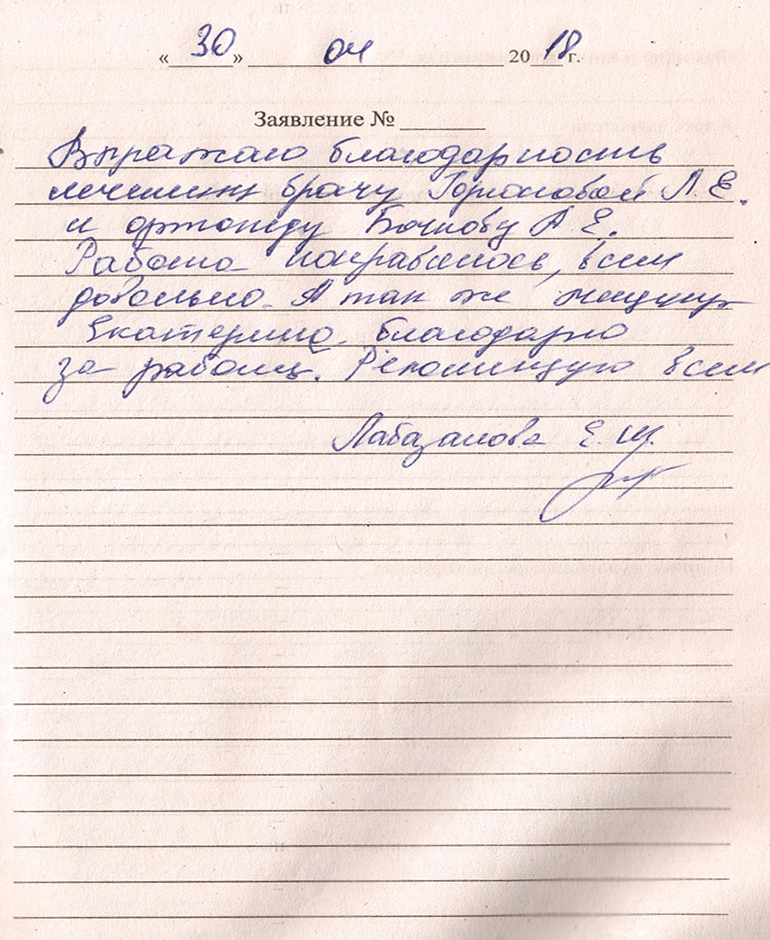 «30» 04 2018 г.
Заявление №
Выражаю благодарность
лечащему врачу Л.Е.
и ортопеду Бочкову А.Е.
Работа понравилось, всем
довольна. А так же
Екатерина благодарю
за работу. Рекомендую всем
Лабазанова Е.Ш.